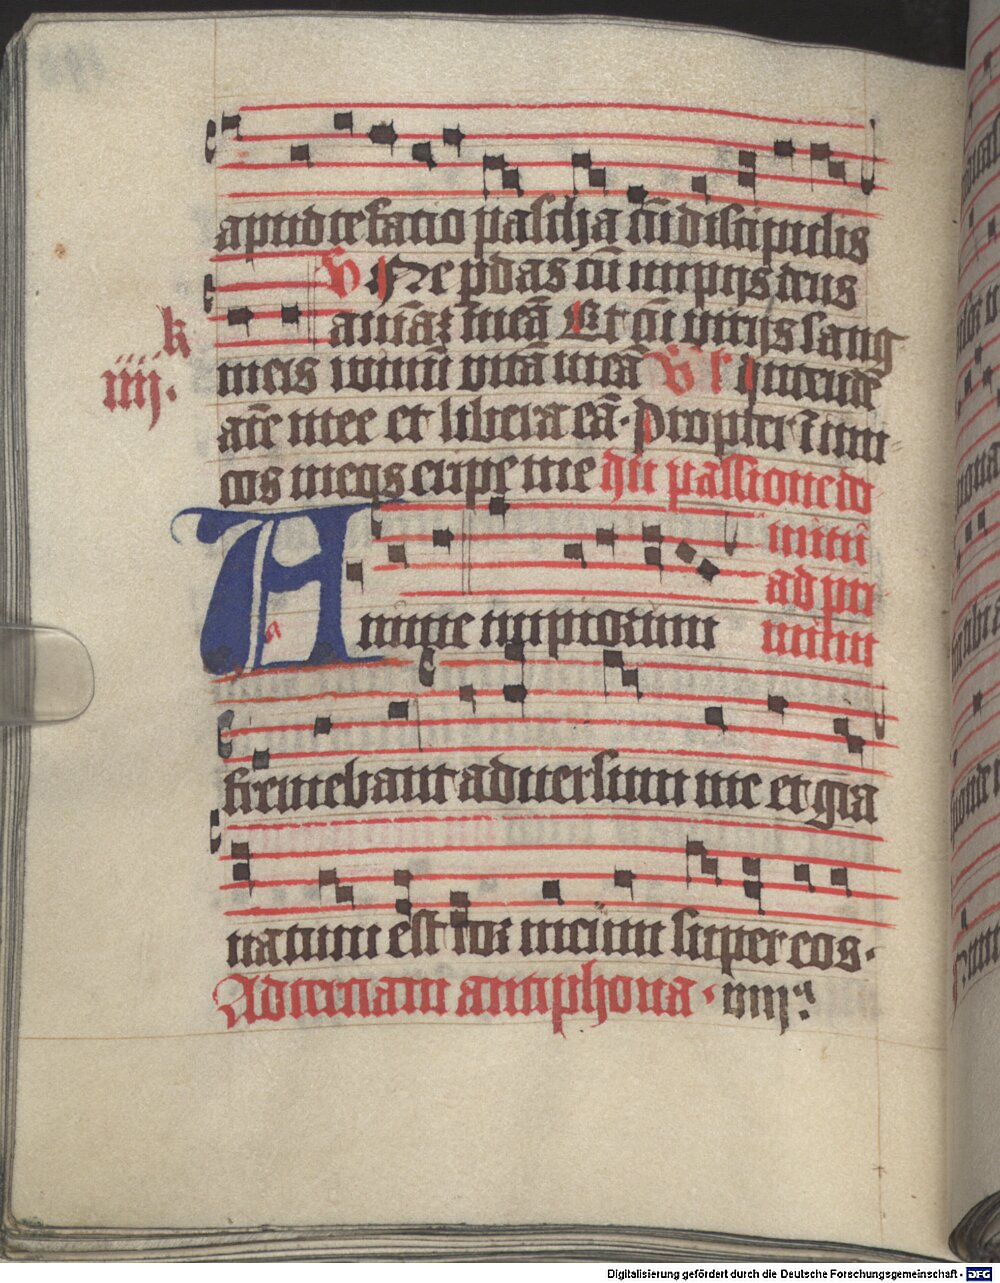 apud te facio pascha cū discipulis
V Ne pdas cū impijs deus
k
aniāʒ meā Et cū virijs sang
meis vitā meā V s intende
iiij.
aīe mee et libera eā. Propter inimi
cos meos eripe me dn̄ passione do
A
minicā
ad pri
a
nime impiorum
mam
fremebant aduersum me et gra
uatum est cor meum super eos.
Ad terciam antiphona. iiij.ª
Digitalisierung gefördert durch die Deutsche Forschungsgemeinschaft - DFG